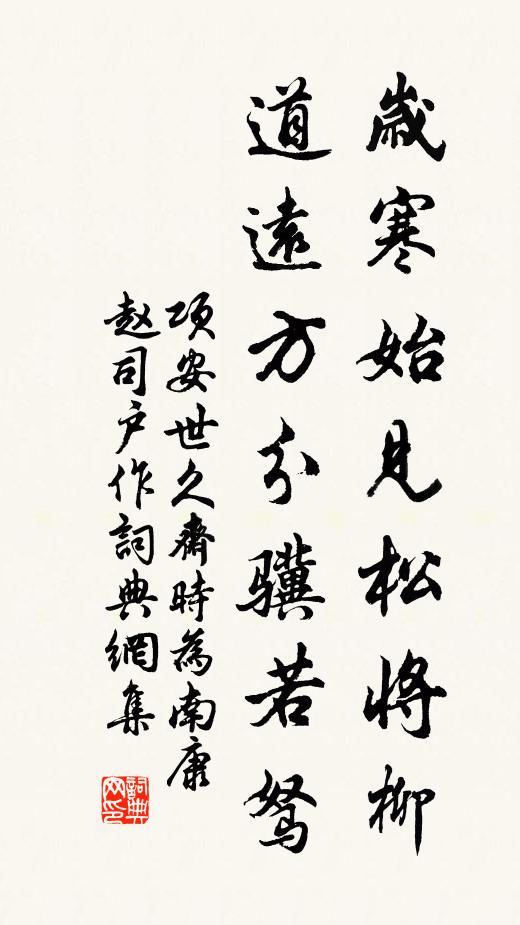 歲寒始見松將柳
道遠方分驥若駑
項安世久齋時為南康
赵司户作詞典網集
詞典网印